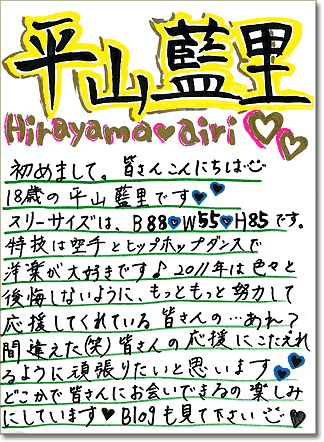 平山藍里
Hirayama♥airi♡♡
初めまして。皆さんこんにちは
18歳の平山藍里です♥♥
スリーサイズは、B88♥W55♥H85です。
特技は空手とヒップホップダンスで
洋楽が大好きです♪2011年は色々と
後悔しないように、もっともっと努力して
応援してくれている皆さんの…あれ?
間違えた(笑)皆さんの応援にこたえれ
るように頑張りたいと思います♥♥
どこかで皆さんにお会いできるの楽しみ
にしています♥Blogも見て下さい♥